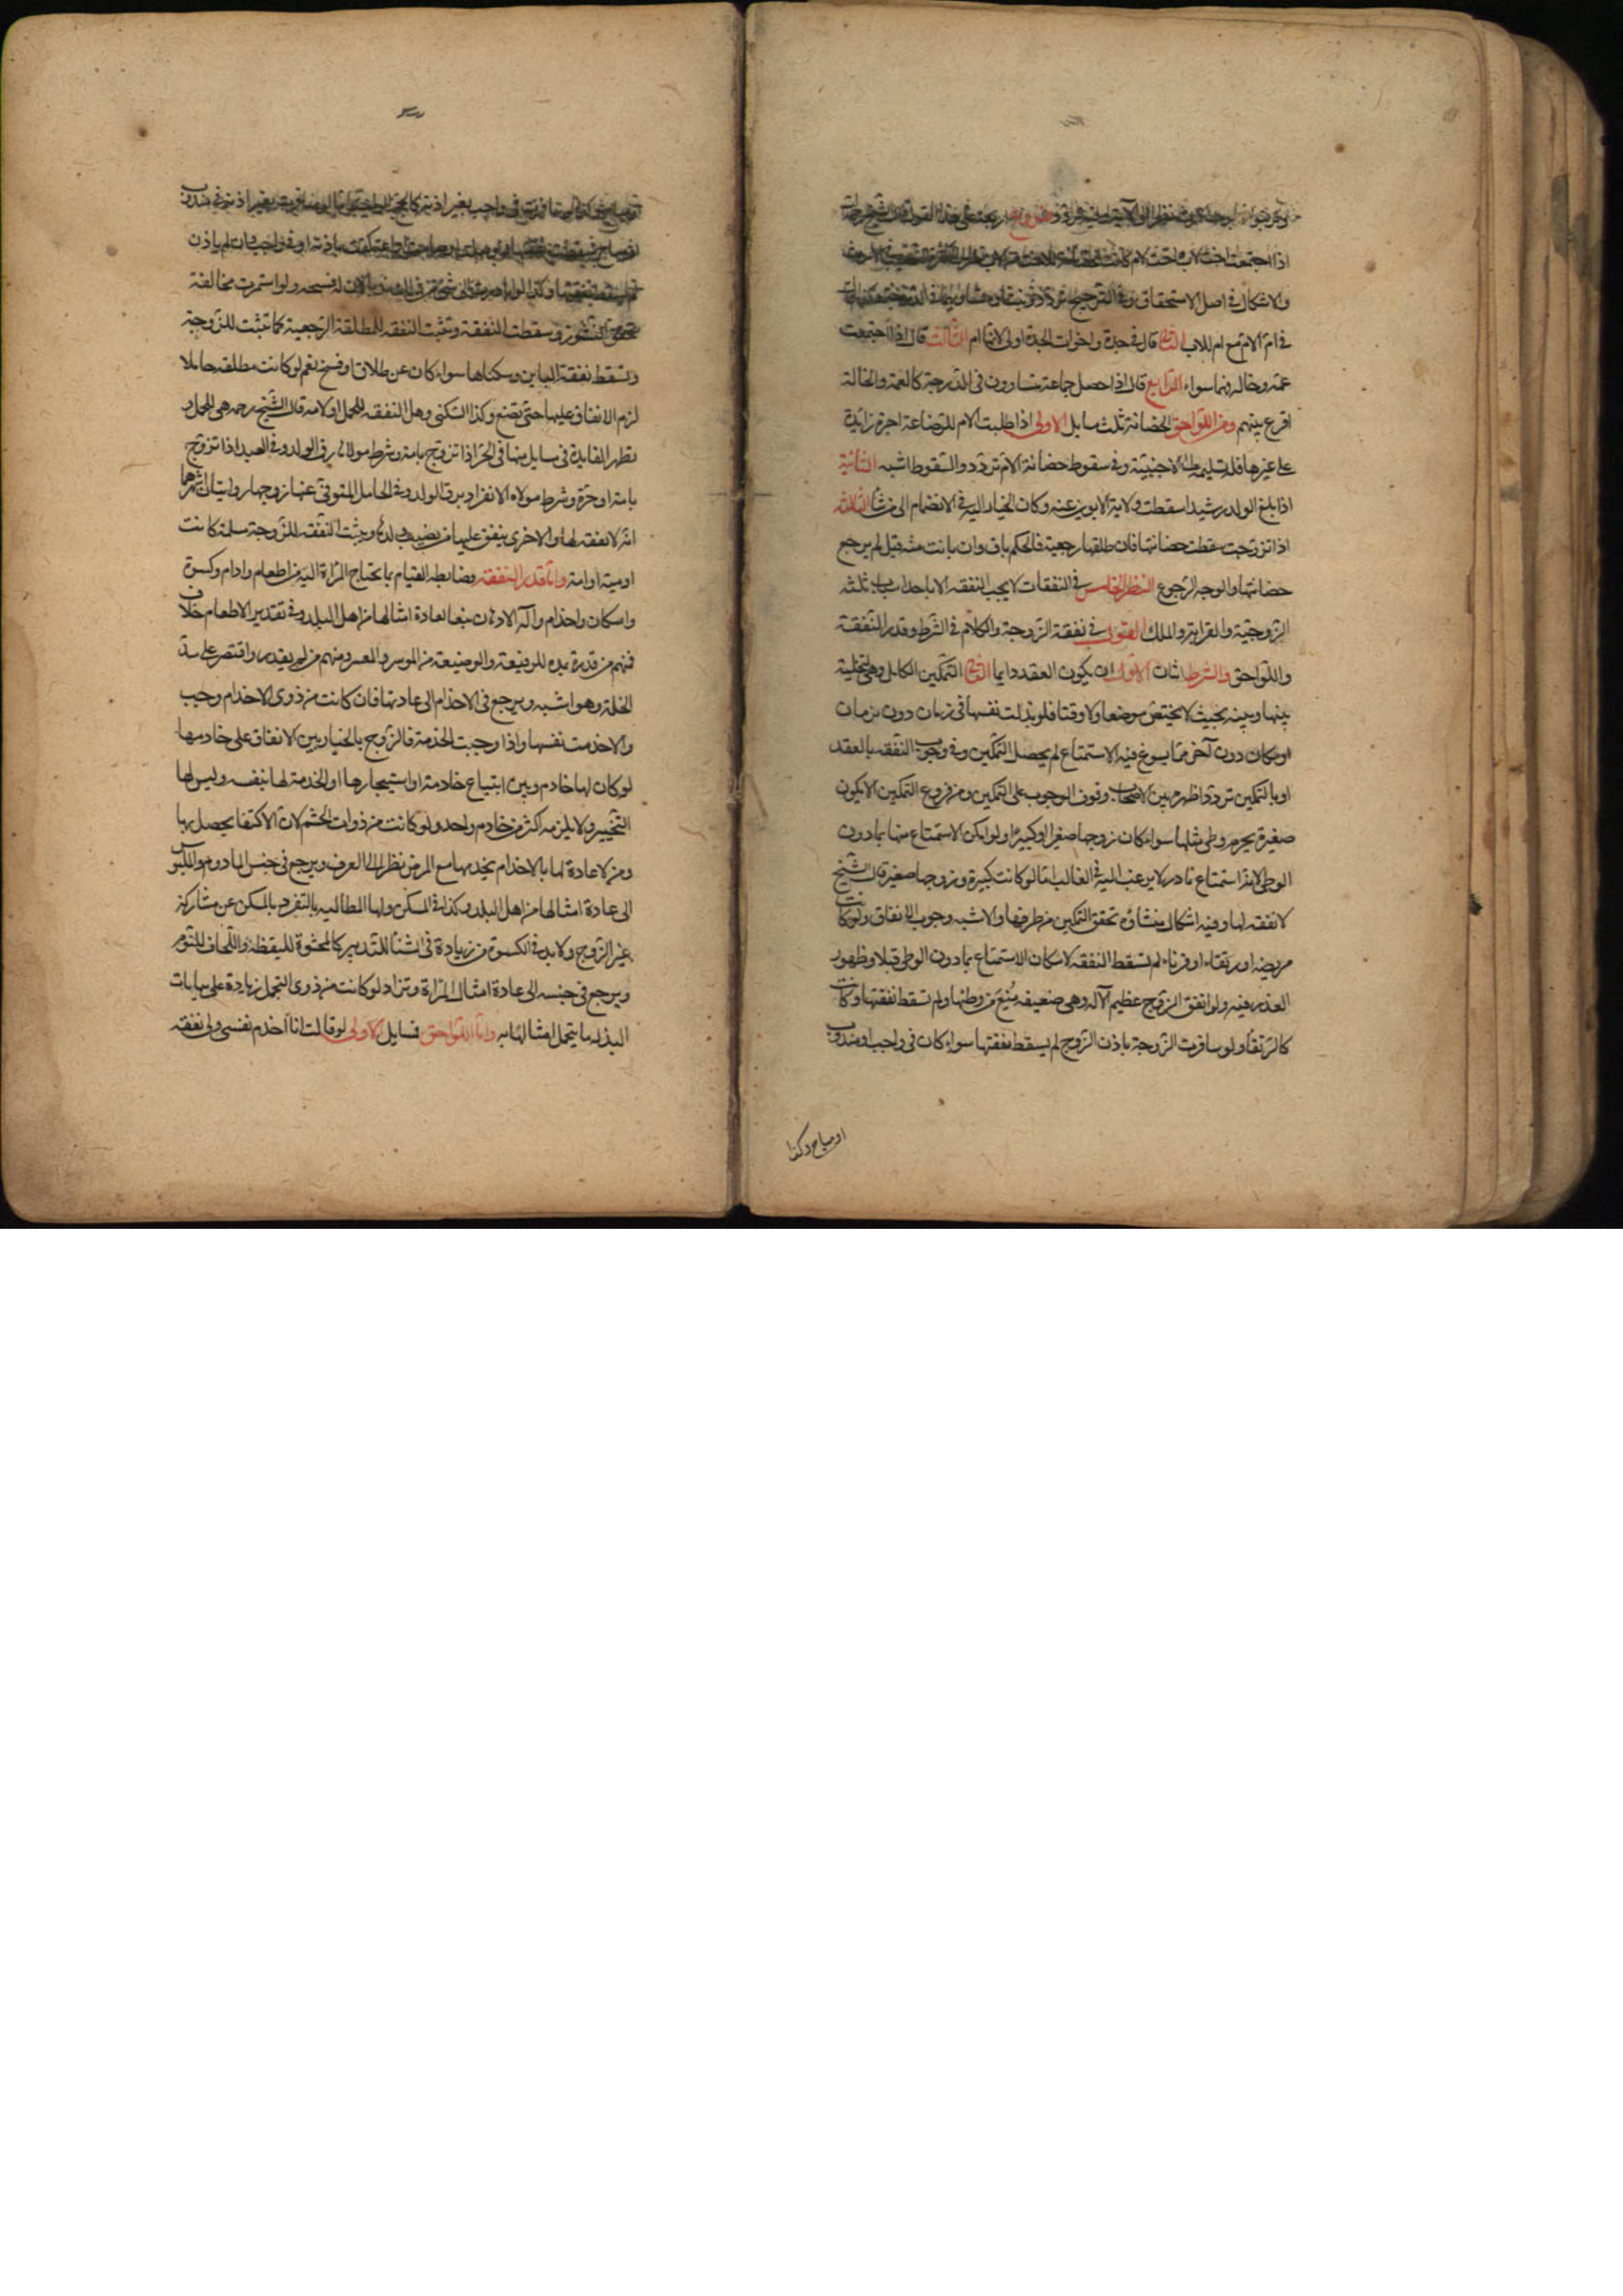 اذا اجتمعت اخت لاب واخت لام كانت الحضانة للاخت للاب نظرا الى الكثرة في الارث
والاشكال في اصل الاستحقاق وفي الترجيح تردد ومنشاوه تساويهما في الدرجة وكذا قال
في ام الام مع ام الاب الثاني قال في جدة واخوات الجدة اولى لانها ام الثالث قال اذا اجتمعت
عمة وخاله فهما سواء الرابع قال اذا حصل جماعة متساوون فى الدرجة كالعمة والخالة
اقرع بينهم ومن اللواحق الحضانة ثلث مسايل الاولى اذا طلبت الام للرضاعة اجرة زايدة
على غيرها فله تسليمه الى الاجنبيّة وفي سقوط حضانة الام تردد والسّقوط اشبه الثانية
اذا بلغ الولد رشيدا سقطت ولاية الابوين عنه وكان الخيار اليه في الانضمام الى من شآ الثالثه
اذا تزوّجت سقطت حضانتها فان طلقها رجعية فالحكم باق وان بانت منه قيل لم يرجع
حضانتها والوجه الرّجوع النظر الخامس في النفقات لا يجب النفقه الا باحد اسباب ثلثه
الزوجيّة والقرابة والملك القول في نفقة الزوجة والكلام في الشّرط وقدر النّفقة
واللواحق والشرط اثنان الاول ان يكون العقد دايما الثاني التمكين الكامل وهو التخلية
بينها وبينه بحيث لا يختصّ موضعا ولا وقتا فلو بذلت نفسها في زمان دون زمان
او مكان دون آخر ممّا يسوغ فيه الاستمتاع لم يحصل التمكين وفي وجوب النفقه بالعقد
او بالتمكين تردّد اظهره بين الاصحاب وقوف الوجوب على التمكين ومن فروع التمكين الا يكون
صغيرة يحرم وطى مثلها سواء كان زوجها صغيرا او كبيرا ولو امكن الاستمتاع منها بما دون
الوطى لانه استمتاع نادر لا يرغب اليه في الغالب امّا لو كانت كبيرة وزوجها صغير قال الشّيخ
لا نفقه لها وفيه اشكال منشاؤه تحقق التمكين من طرفها والاشبه وجوب الانفاق ولو كانت
مريضه او رتقاء او قرناء لم تسقط النفقه لامكان الاستمتاع بما دون الوطى قبلا وظهور
العذر فيه ولو اتفق الزوج عظيم الآله وهى ضعيفه مُنِعَ من وطئها ولم تسقط نفقتها وكانت
كالرتقآ ولو سافرت الزّوجة باذن الزوج لم يسقط نفقتها سواء كان في واجب او مندوب
او مباح وكذا
او مباح وكذا لو سافرت في واجب بغير اذنه كالحج الواجب امّا لو سافرت بغير اذنه في مندوب
او مباح سقطت نفقتها ولو صلت او صامت او اعتكفت باذنه او في واجب وان لم ياذن
لم تسقط نفقتها وكذا لو بادرت الى شئ من ذلك ندبا لان له فسخه ولو استمرت مخالفة
تحقق النشوز وسقطت النّفقة وتثبت النفقه للمطلقة الرّجعية كما تثبت للزوجة
وتسقط نفقة الباين وسكناها سواء كان عن طلاق او فسخ نعم لو كانت مطلقه حاملا
لزم الانفاق عليها حتى تضع وكذا السّكنى وهل النفقه للحمل او لامه قال الشّيخ رحمه هى للحمل و
تظهر الفايدة في مسايل منها في الحرّ اذا تزوّج بامة وشرط مولاها رق الولد وفي العبد اذا تزوّج
بامة او حرّة وشرط مولاه الانفراد برق الولد وفي الحامل المتوفى عنها زوجها روايتان اشهرهما
انّه لا نفقه لها والاخرى ينفق عليها من نصيب ولدها وتثبت النّفقه للزّوجة مسلمة كانت
او ذمية او امة وامّا قدر النّفقه فضابطه القيام بما يحتاج المرأة اليه من طعام وادام وكسوة
واسكان واخدام وآلة الادهان تبعا لعادة امثالها من اهل البلد وفي تقدير الاطعام خلاف
فمنهم من قدره بمدّ للرفيعة والوضيعة من الموسر والمعسر ومنهم من لم يقدر واقتصر على سدّ
الخلة وهو اشبه ويرجع في الاخدام الى عادتها فان كانت من ذوى الاخدام وجب
والا خدمت نفسها واذا وجبت الخدمة فالزّوج بالخيار بين الانفاق على خادمها
لو كان لها خادم وبين ابتياع خادمة او استيجارها او الخدمة لها بنفسه وليس لها
التخيير ولا يلزمه اكثر من خادم واحد ولو كانت من ذوات الحشم لان الاكتفا يحصل بها
ومن لا عادة لها بالاخدام يخدمها مع المرض نظرا الى العرف ويرجع في جنس المادوم والملبس
الى عادة امثالها من اهل البلد وكذا في المسكن ولها المطالبه بالتفرد بالمسكن عن مشاركة
غير الزّوج ولا بد في الكسوة من زيادة في الشتآ للتدثير كالمحشوة لليقظه واللّحاف للنّوم
ويرجع في جنسه الى عادة امثال المرأة وتزاد لو كانت من ذوى التجمل زيادة على ثياب
البذله ما يتجمل امثالها به وامّا اللّواحق فمسايل الاولى لو قالت انا اخدم نفسى ولى نفقه